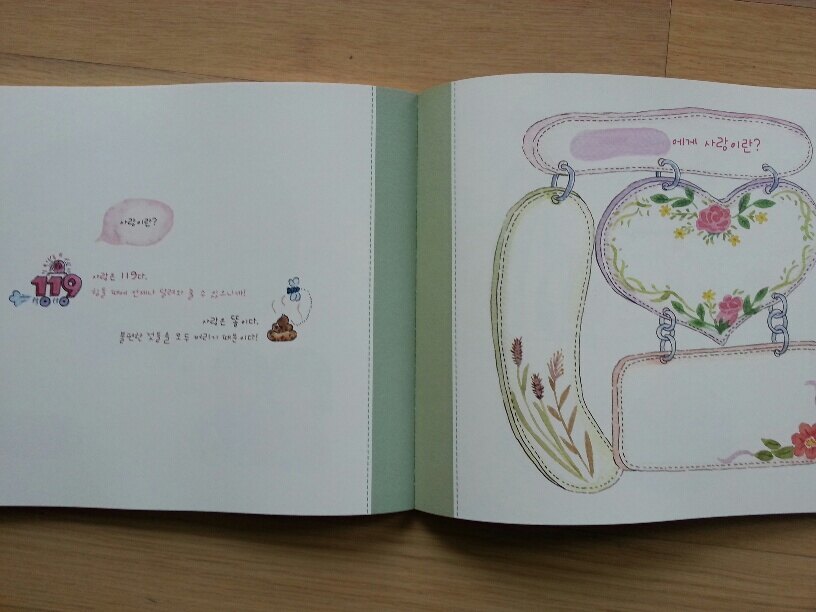 사랑이란?
119
사랑은 119다.
힘들 때에 언제나 달려와 줄 수 있으니까!
사랑은 똥이다.
불편한 것들을 모두 버리기 때문이다!
에게 사랑이란?